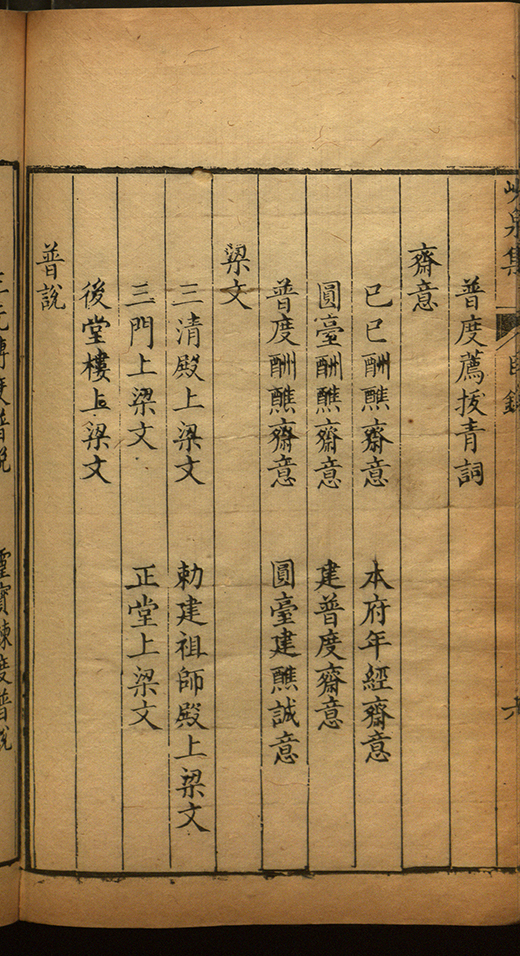 泉集
目錄
普度薦拔青詞
齋意
己巳酬醮齋意 本府年經齋意
圓臺酬醮齋意 建普度齋意
普度酬醮齋意 圓臺建醮誠意
梁文
三清殿上梁文 勅建祖師殿上梁文
三門上梁文 正堂上梁文
後堂樓上梁文
普說
度普說 靈寶鍊度普說